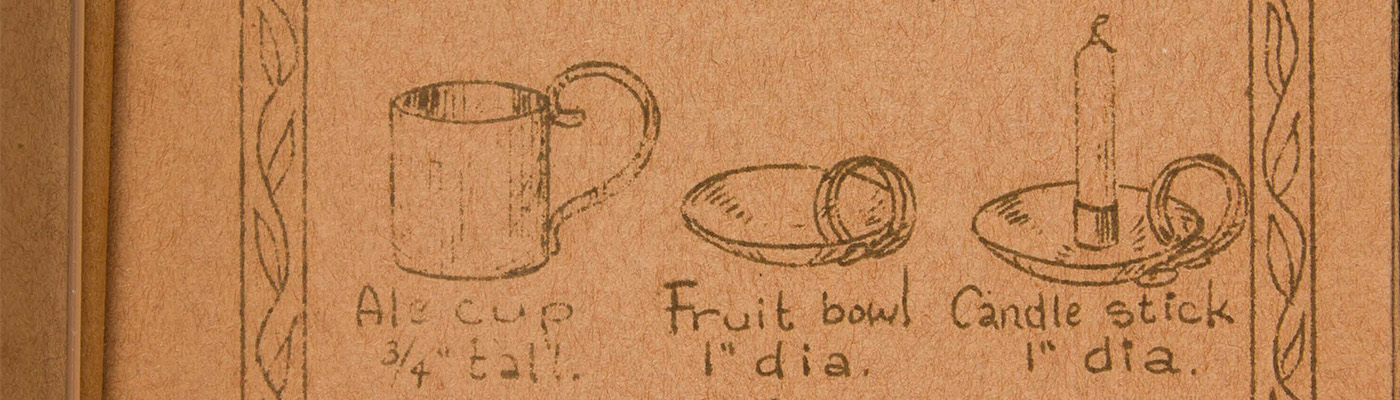 Ale cup
3/4" tall.
Fruit bowl
1" dia.
Candle stick
1" dia.